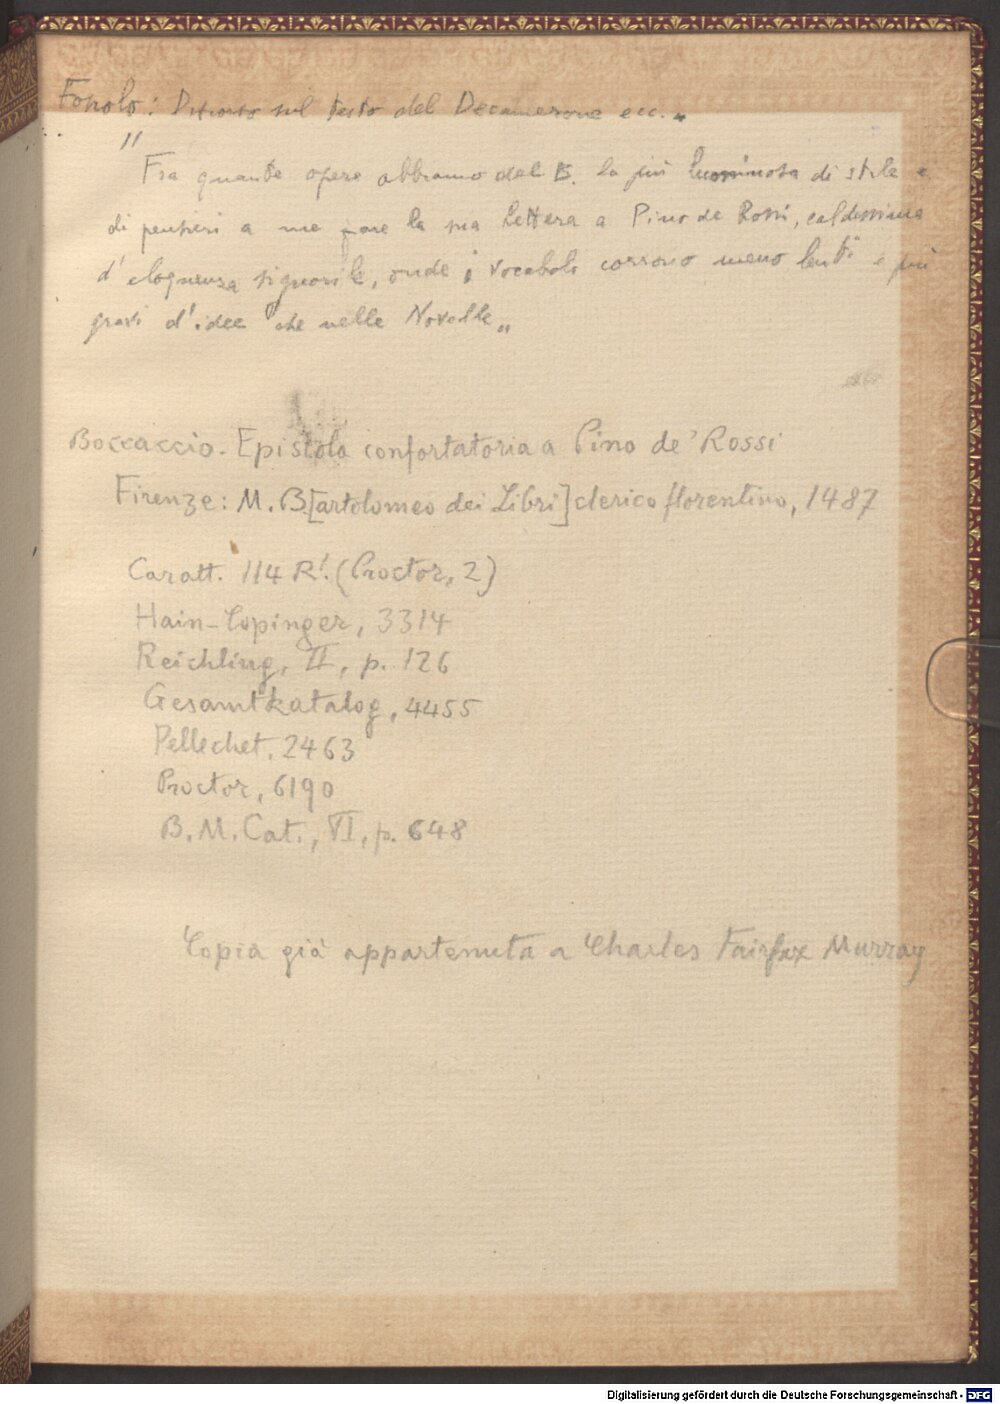 Foscolo: Discorso sul testo del Decamerone ecc. „
"Fra quante opere abbiamo del B. la più luminosa di stile e
di pensieri a me pare la sua Lettera a Pino de Rossi, caldissima
d'eloquenza signorile, onde i vocaboli corrono meno lenti e più
gravi d'idee che nelle Novelle„
Boccaccio. Epistola confortatoria a Pino de' Rossi
Firenze: M. B[artolomeo dei Libri] clerico florentino, 1487
Caratt. 114 R'. (Proctor, 2)
Hain-Copinger, 3314
Reichling, II, p. 126
Gesamtkatalog, 4455
Pellechet, 2463
Proctor, 6190
B. M. Cat., VI, p. 648
Copia già appartenuta a Charles Fairfax Murray
Digitalisierung gefördert durch die Deutsche Forschungsgemeinschaft - DFG